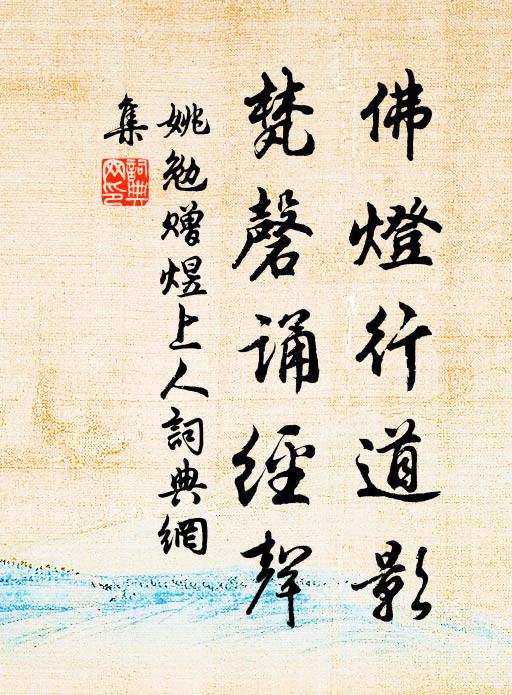 佛燈行道影
梵磬诵經聲
姚勉赠煜上人詞典網
集
詞典網印